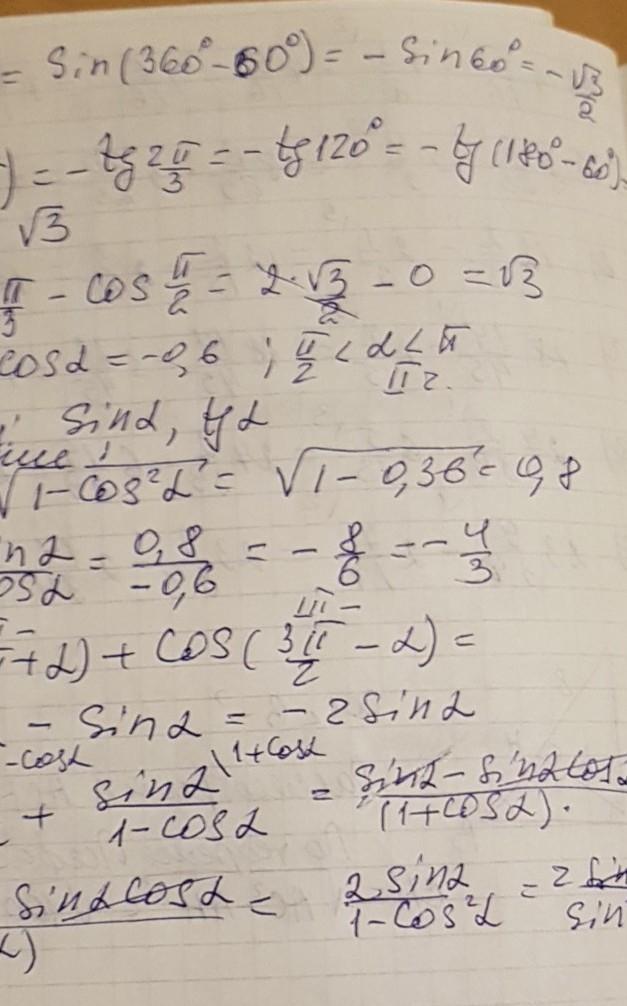 = Sin(360° - 60°) = - Sin60° = - √3/2
) = - tg 2π/3 = - tg120° = - tg(180° - 60°)
√3
π/3 - cos π/2 = 2·√3/2 - 0 = √3
cosα = -0,6 ; π/2 < α < π
II г.
Sinα, tgα
√1-cos²α = √1-0,36 = 0,8
inα/osα = 0,8/-0,6 = - 8/6 = - 4/3
III -
+α) + cos(3π/2 - α) =
- Sinα = - 2Sinα
-cosα \1+cosα
+ sinα/1-cosα = sinα - sinαcosα/(1+cosα)·
sinαcosα = 2sinα/1-cos²α = 2sin/sin
α)